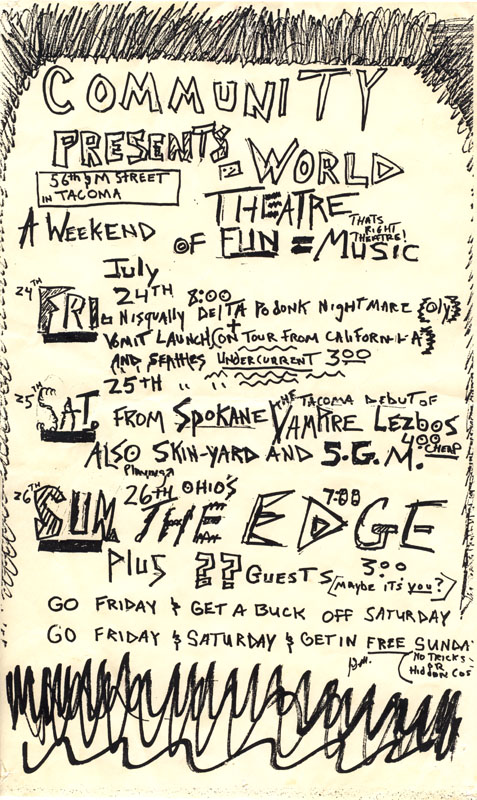 COMMUNITY
PRESENTS @ WORLD
56th & M STREET
IN TACOMA
THEATRE
THATS RIGHT THEATRE!
A WEEKEND OF FUN = MUSIC
July
24TH FRI. 24TH 8:00
NISQUALLY DELTA PODONK NIGHTMARE {Oly}
+
VOMIT LAUNCH (ON TOUR FROM CALIFORNIA)
AND SEATTLES UNDERCURRENT 3.00
25TH SAT. 25TH " "
FROM SPOKANE THE TACOMA DEBUT OF
VAMPIRE LEZBOS
4.00 CHEAP
ALSO SKIN-YARD AND S.G.M.
26TH SUN. 26TH OHIO'S 7:00
THE EDGE
PLUS ?? GUESTS 3.00
(MAYBE ITS YOU?)
GO FRIDAY & GET A BUCK OFF SATURDAY
GO FRIDAY & SATURDAY & GET IN FREE SUNDA
(NO TRICKS
OR
HIDDEN COS